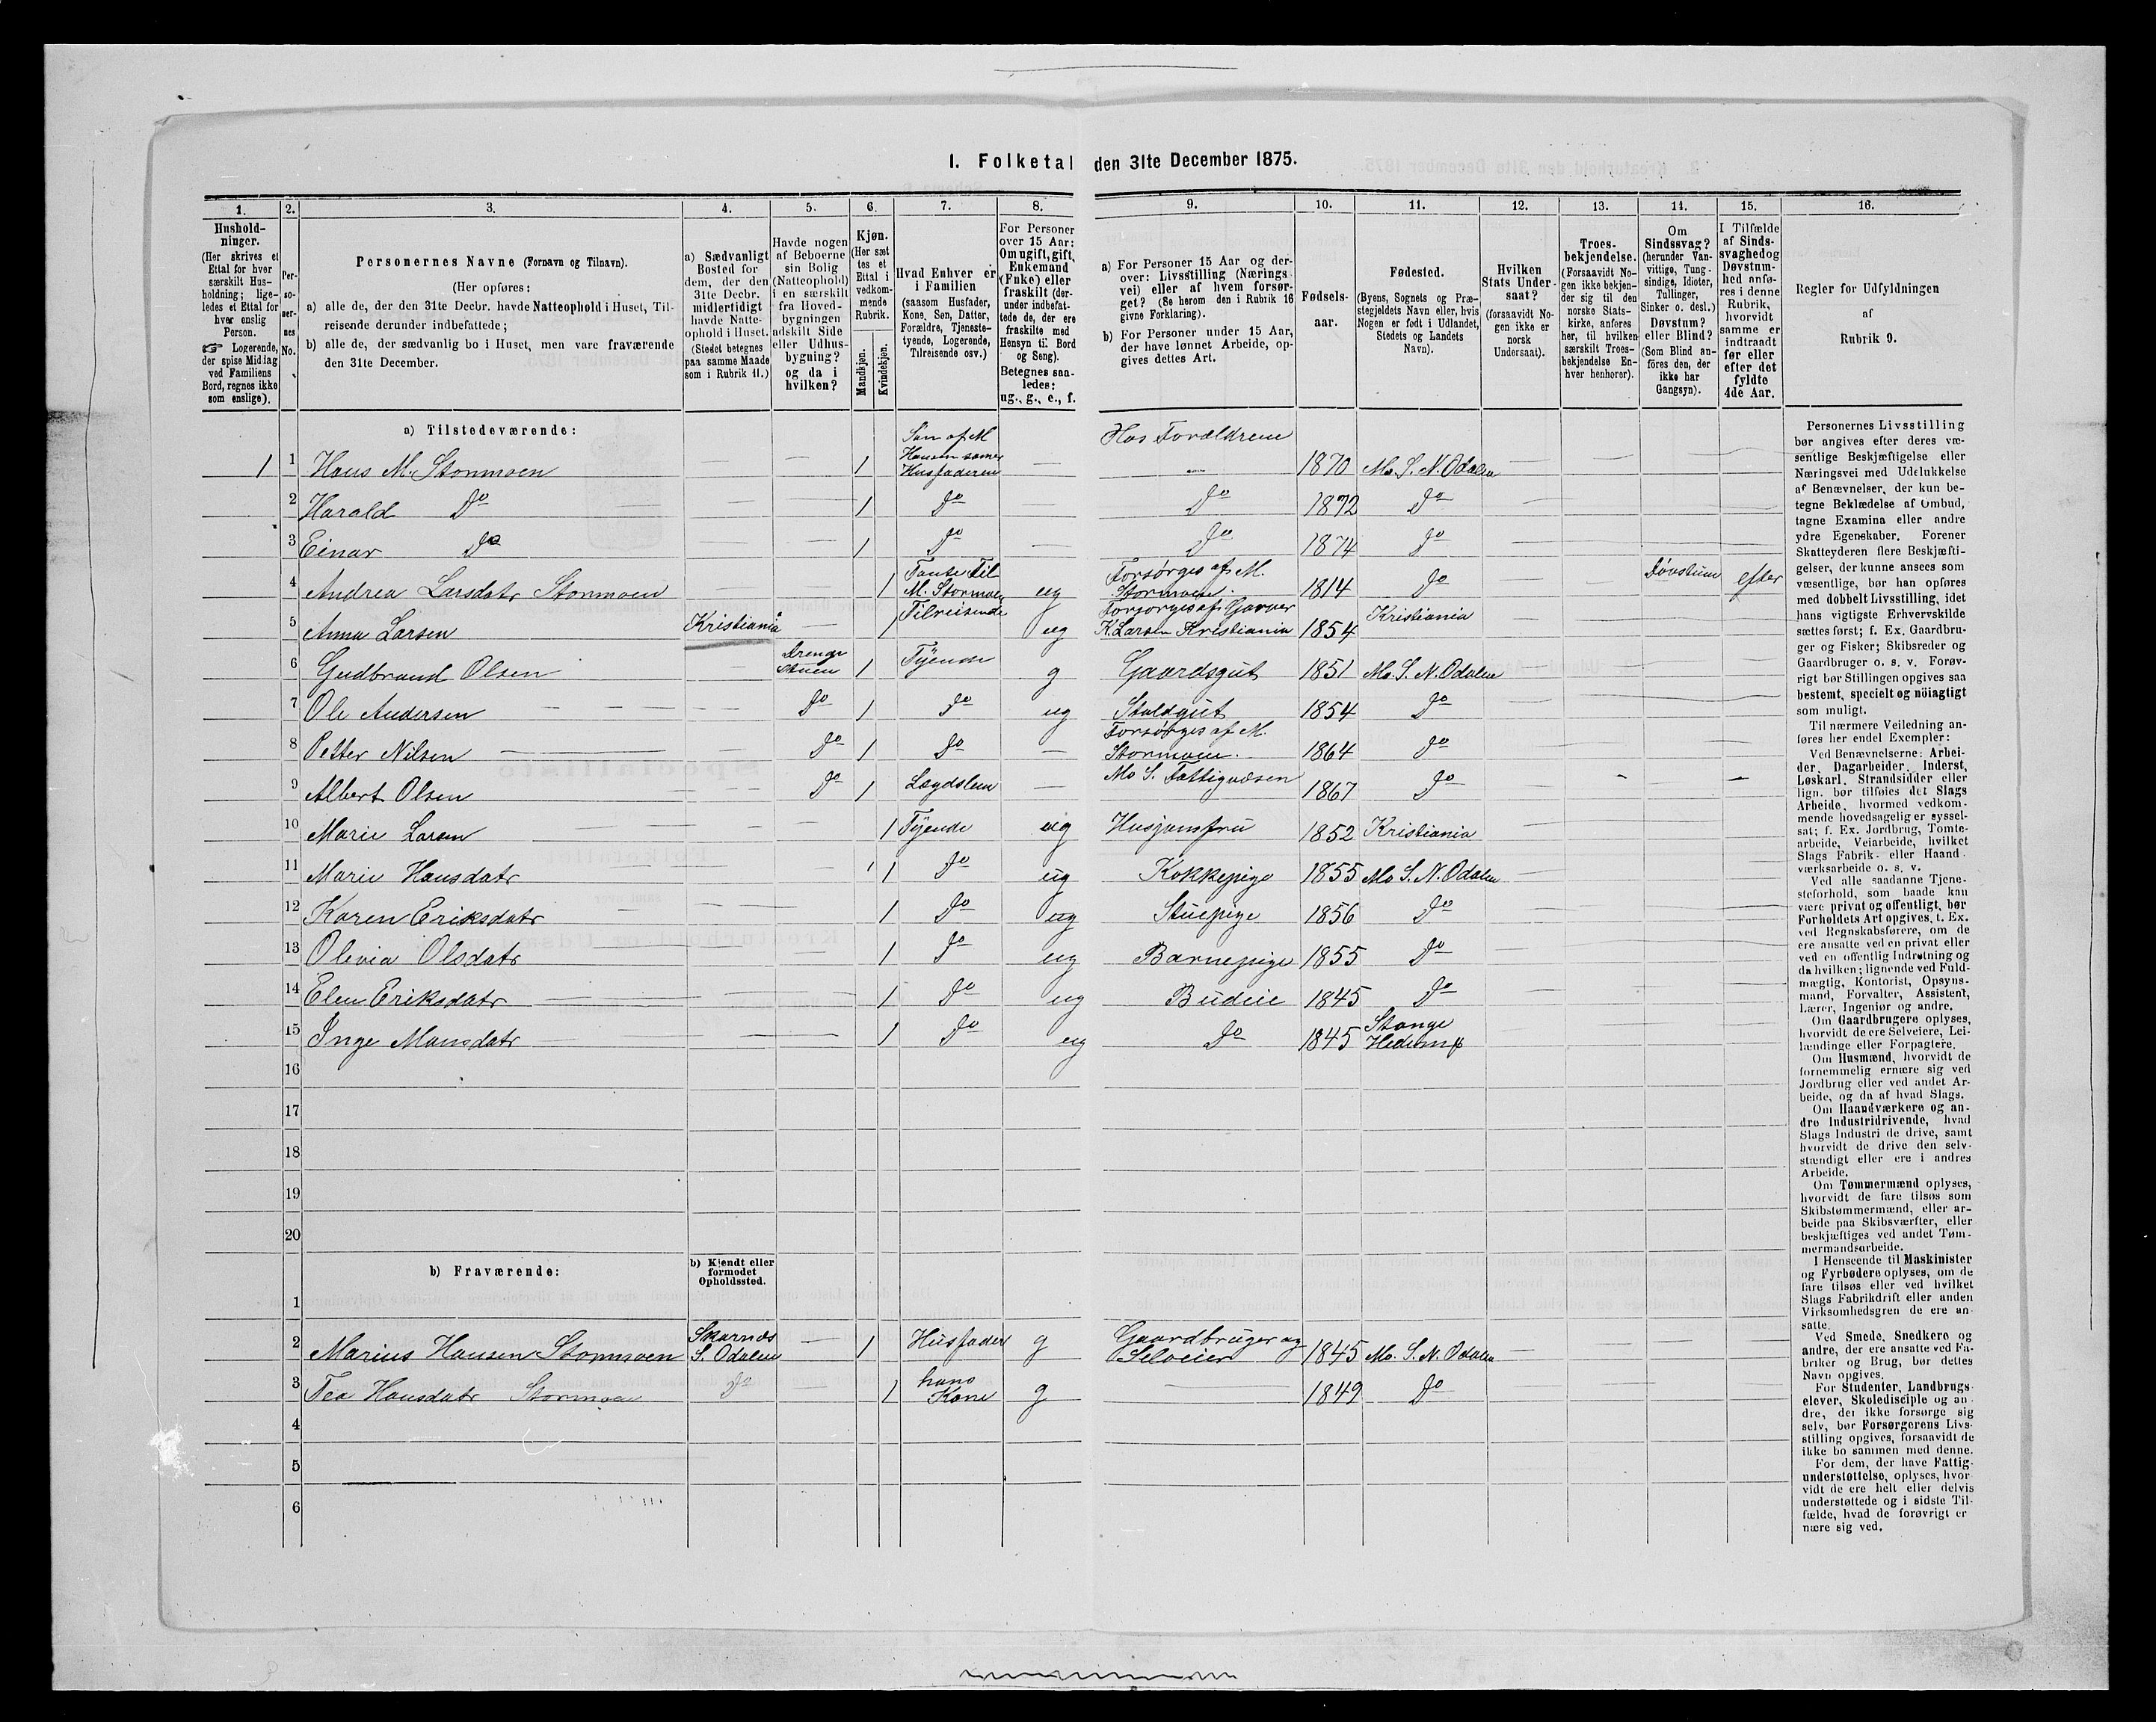 1. Folketal den 31te December 1875.
1.
2.
3.
4.
5.
6.
7.
8.
9.
10.
11.
12.
13.
14.
15.
16.
Hushold-
ninger.
(Her skrives et
Ettal for hver
særskilt Hus-
holdning; lige-
ledes et Ettal for
hver enslig
Person.
☞ Logerende,
der spise Middag
ved Familiens
Bord, regnes ikke
som enslige).
Per-
so-
ner-
nes
No.
Personernes Navne (Fornavn og Tilnavn).
(Her opføres:
a) alle de, der den 31te Decbr. havde Natteophold i Huset, Til-
reisende derunder indbefattede;
b) alle de, der sædvanlig bo i Huset, men vare fraværende
den 31te December.
a) Sædvanligt
Bosted for
dem, der den
31te Decbr.
midlertidigt
havde Natte-
ophold i Huset.
(Stedet betegnes
paa samme Maade
som i Rubrik 11.)
Havde nogen
af Beboerne
sin Bolig
(Natteophold)
i en særskilt
fra Hoved-
bygningen
adskilt Side
eller Udhus-
bygning?
og da i
hvilken?
Kjøn.
(Her sæt
tes et
Ettal i
vedkom-
mende
Rubrik.
Mandkjøn.
Kvindekjøn.
Hvad Enhver er
i Familien
(saasom Husfader,
Kone, Søn, Datter,
Forældre, Tjeneste-
tyende, Logerende,
Tilreisende osv.)
For Personer
over 15 Aar:
Om ugift, gift,
Enkemand
(Enke) eller
fraskilt (der-
under indbefat-
tede de, der ere
fraskilte med
Hensyn til Bord
og Seng).
Betegnes saa-
ledes:
ug., g., e., f.
a) For Personer 15 Aar og der-
over: Livsstilling (Nærings-
vei) eller af hvem forsør-
get? (Se herom den i Rubrik 16
givne Forklaring).
b) For Personer under 15 Aar,
der have lønnet Arbeide, op-
gives dettes Art.
Fødsels-
aar.
Fødested.
(Byens, Sognets og Præ-
stegjeldets Navn eller, hvis
Nogen er født i Udlandet,
Stedets og Landets
Navn).
Hvilken
Stats Under-
saat?
(forsaavidt No-
gen ikke er
norsk
Undersaat).
Troes-
bekjendelse.
(Forsaavidt No-
gen ikke bekjen-
der sig til den
norske Stats-
kirke, anføres
her, til hvilken
særskilt Troes-
bekjendelse En-
hver henhører).
Om
Sindssvag?
(herunder Van-
vittige, Tung-
sindige, Idioter,
Tullinger,
Sinker o. desl.)
Døvstum?
eller Blind?
(Som Blind an-
føres den, der
ikke har
Gangsyn).
I Tilfælde
af Sinds-
svaghed og
Døvstum-
hed anfø-
res i denne
Rubrik,
hvorvidt
samme er
indtraadt
før eller
efter det
fyldte
4de Aar.
Regler for Udfyldningen
af
Rubrik 9.
a) Tilstedeværende:
1 1 Hans M. Stormoen 1 Søn af M Hansen samen Husfaderen Hos Forældrene 1870 Mo S. N. Odalen
2 Harald Do 1 Do Do 1872 Do
3 Einar Do 1 Do Do 1874 Do
4 Andrea Larsdatr Stormoen 1 Tante til M. Stormoen ug Forsørges af M. Stormoen. 1814 Do Døvstum efter
5 Anna Larsen Kristiania 1 Tilreisende ug Forsørges af Garver K. Larsen Kristiania 1854 Kristiania
6 Gudbrand Olsen Drenge stuen 1 Tyende g Gaardsgut 1851 Mo S. N. Odalen
7 Ole Andersen Do 1 Do ug Staldgut 1854 Do
8 Petter Nilsen Do 1 Do Forsørges af M. Stormoen. 1864 Do
9 Albert Olsen Do 1 Lægdslem Mo S. Fattigvæsen 1867 Do
10 Marie Larsen 1 Tyende ug Husjomfru 1852 Kristiania
11 Marie Hansdatr 1 Do ug Kokkepige 1855 Mo S. N. Odalen
12 Karen Eriksdatr 1 Do ug Stuepige 1856 Do
13 Olevia Olsdatr 1 Do ug Barnepige 1855 Do
14 Elen Eriksdatr 1 Do ug Budeie 1845 Do
15 Inge Monsdatr 1 Do ug Do 1845 Stange Hedem
16
17
18
19
20
b) Fraværende:
b) Kjendt eller
formodet
Opholdssted.
1
2 Marius Hansen Stormoen Skarnæs S. Odalen 1 Husfader g Gaardbruger og Selveier 1845 Mo. S. N. Odalen
3 Tea Hansdatr Stormoen Do 1 hans Kone g 1849 Do
4
5
6
Personernes Livsstilling
bør angives efter deres væ-
sentlige Beskjæftigelse eller
Næringsvei med Udelukkelse
af Benævnelser, der kun be-
tegne Beklædelse af Ombud,
tagne Examina eller andre
ydre Egenskaber. Forener
Skatteyderen flere Beskjæfti-
gelser, der kunne ansees som
væsentlige, bør han opføres
med dobbelt Livsstilling, idet
hans vigtigste Erhvervskilde
sættes først; f. Ex. Gaardbru-
ger og Fisker; Skibsreder og
Gaardbruger o. s. v. Forøv-
rigt bør Stillingen opgives saa
bestemt, specielt og nöiagtigt
som muligt.
Til nærmere Veiledning an-
føres her endel Exempler:
Ved Benævnelserne: Arbei-
der, Dagarbeider, Inderst,
Løskarl, Strandsidder eller
lign. bør tilføies det Slags
Arbeide, hvormed vedkom-
mende hovedsagelig er syssel-
sat; f. Ex. Jordbrug, Tomte-
arbeide, Veiarbeide, hvilket
Slags Fabrik- eller Haand-
værksarbeide o. s. v.
Ved alle saadanne Tjene-
steforhold, som baade kan
være privat og offentligt, bør
Forholdets Art opgives, t. Ex.
ved Regnskabsførere, om de
ere ansatte ved en privat eller
ved en offentlig Indretning og
da hvilken; lignende ved Fuld-
mægtig, Kontorist, Opsyns-
mand, Forvalter, Assistent,
Lærer, Ingeniør og andre.
Om Gaardbrugere oplyses,
hvorvidt de ere Selveiere, Lei-
lændinge eller Forpagtere.
Om Husmænd, hvorvidt de
fornemmelig ernære sig ved
Jordbrug eller ved andet Ar-
beide, og da af hvad Slags.
Om Haandværkere og an-
dre Industridrivende, hvad
Slags Industri de drive, samt
hvorvidt de drive den selv-
stændigt eller ere i andres
Arbeide.
Om Tømmermænd oplyses,
hvorvidt de fare tilsøs som
Skibstømmermænd, eller ar-
beide paa Skibsværfter, eller
beskjæftiges ved andet Tøm-
mermandsarbeide.
I Henseende til Maskinister
og Fyrbødere oplyses, om de
fare tilsøs eller ved hvilket
Slags Fabrikdrift eller anden
Virksomhedsgren de ere an-
satte.
Ved Smede, Snedkere og
andre, der ere ansatte ved Fa-
briker og Brug, bør dettes
Navn opgives.
For Studenter, Landbrugs-
elever, Skoledisciple og an-
dre, der ikke forsørge sig
selv, bør Forsørgerens Livs-
stilling opgives, forsaavidt de
ikke bo sammen med denne.
For dem, der have Fattig-
understøttelse, oplyses, hvor-
vidt de ere helt eller delvis
understøttede og i sidste Til-
fælde, hvad de forøvrigt er
nære sig ved.